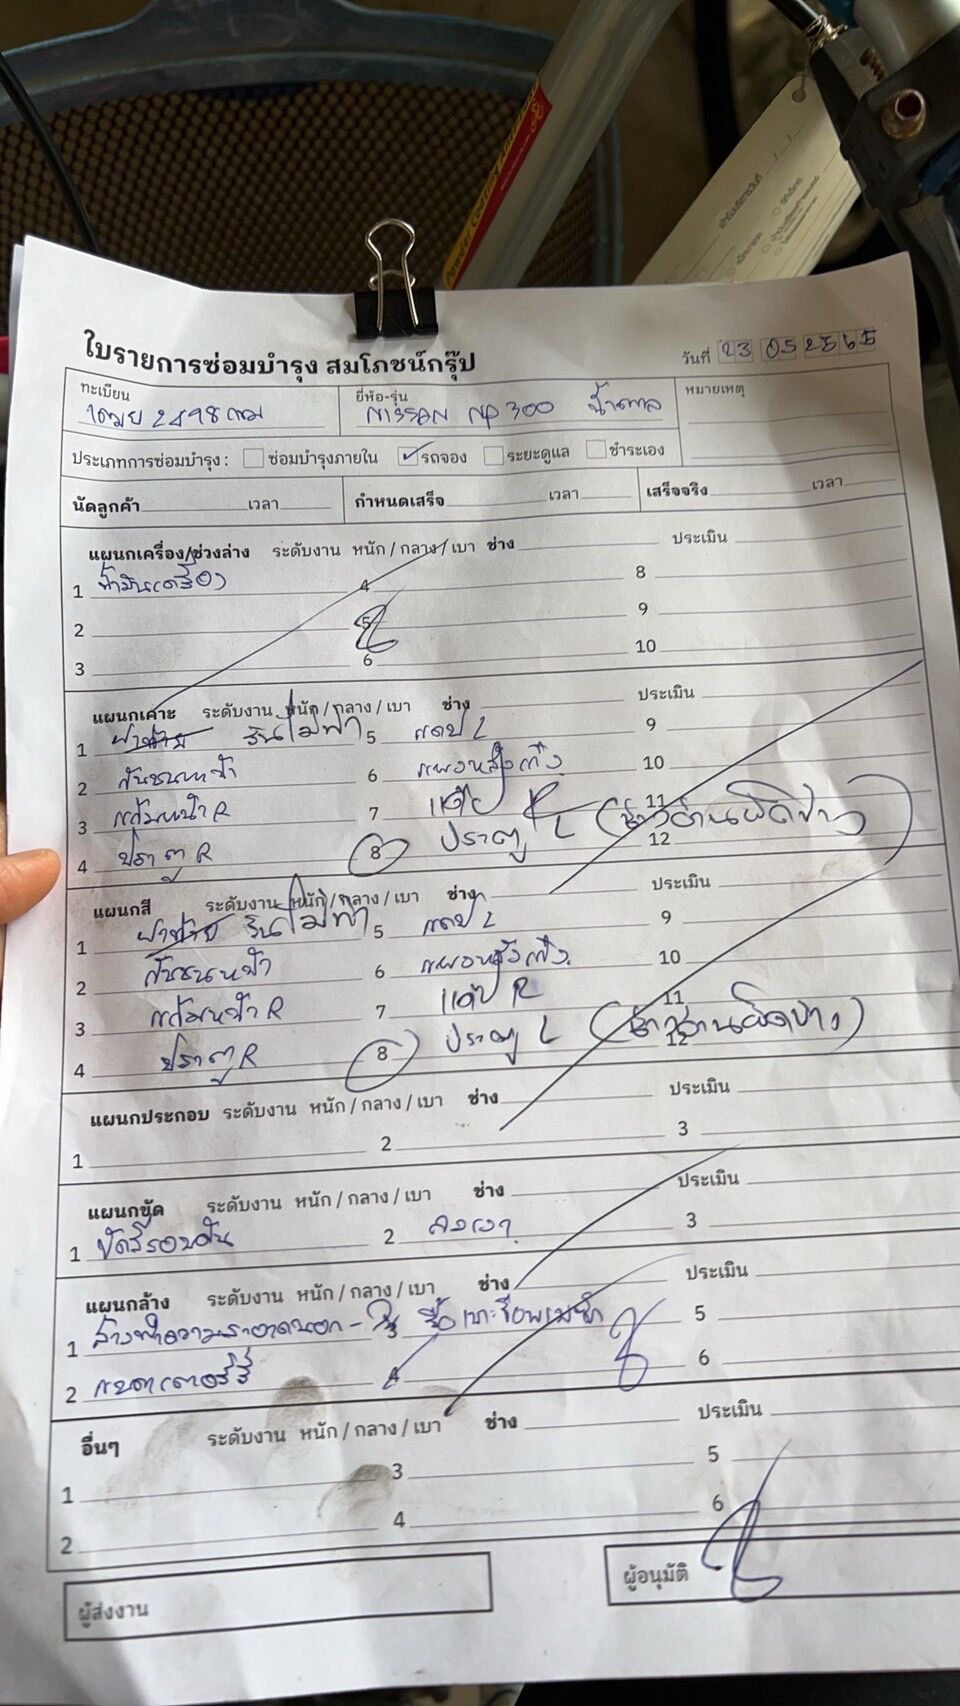 ใบรายการซ่อมบำรุง สมโภชน์กรุ๊ป
วันที่ 23 05 2565
ทะเบียน ยี่ห้อ-รุ่น หมายเหตุ
2498 กทม NISSAN NP 300 น้ำตาล
ประเภทการซ่อมบำรุง : ซ่อมบำรุงภายใน รถจอง ระยะดูแล ชำระเอง
นัดลูกค้า เวลา กำหนดเสร็จ เวลา เสร็จจริง เวลา
แผนกเครื่อง/ช่วงล่าง ระดับงาน หนัก / กลาง / เบา ช่าง ประเมิน
1 น้ำมันเครื่อง 4 8
2 5 9
3 6 10
แผนกเคาะ ระดับงาน หนัก / กลาง / เบา ช่าง ประเมิน
1 ฝาท้าย 5 แคป L 9
2 กันชนหน้า 6 แผงหลังเก๋ง 10
3 แก้มหน้า R 7 แค๊ป R 11
4 ประตู R 8 ประตู L (ช่างอ่านผิดข้าง) 12
แผนกสี ระดับงาน หนัก / กลาง / เบา ช่าง ประเมิน
1 ฝาท้าย 5 แคป L 9
2 กันชนหน้า 6 แผงหลังเก๋ง 10
3 แก้มหน้า R 7 แค๊ป R 11
4 ประตู R 8 ประตู L (ช่างอ่านผิดข้าง) 12
แผนกประกอบ ระดับงาน หนัก / กลาง / เบา ช่าง ประเมิน
1 2 3
แผนกขัด ระดับงาน หนัก / กลาง / เบา ช่าง ประเมิน
1 ขัดสีรอบคัน 2 ลงเงา 3
แผนกล้าง ระดับงาน หนัก / กลาง / เบา ช่าง ประเมิน
1 ล้างทำความสะอาดนอก - ใน 3 5
2 แบตเตอรี่ 4 6
อื่นๆ ระดับงาน หนัก / กลาง / เบา ช่าง ประเมิน
1 3 5
2 4 6
ผู้ส่งงาน ผู้อนุมัติ